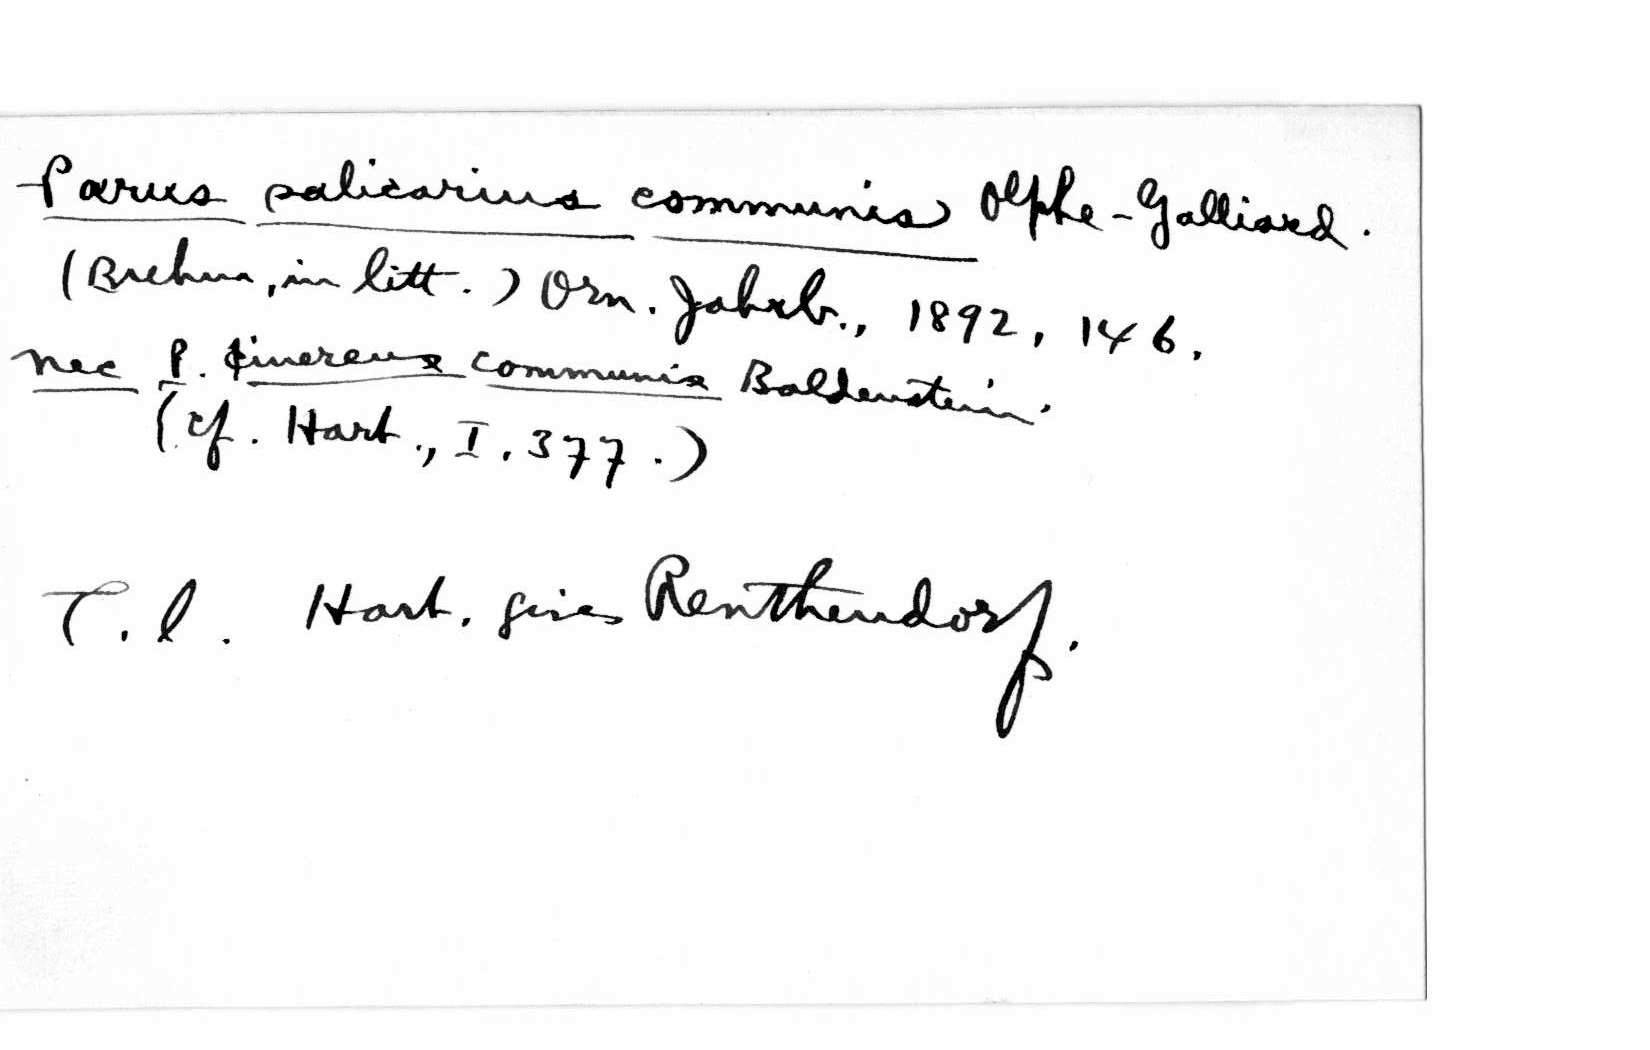 Parus salicarius communis Olphe-Galliard.
(Brehm, in litt.) Orn. Jahrb., 1892, 146.
nec P. cinereus communis Baldenstein.
(cf. Hart., I. 377.)
T. l. Hart. gives Renthendorf.